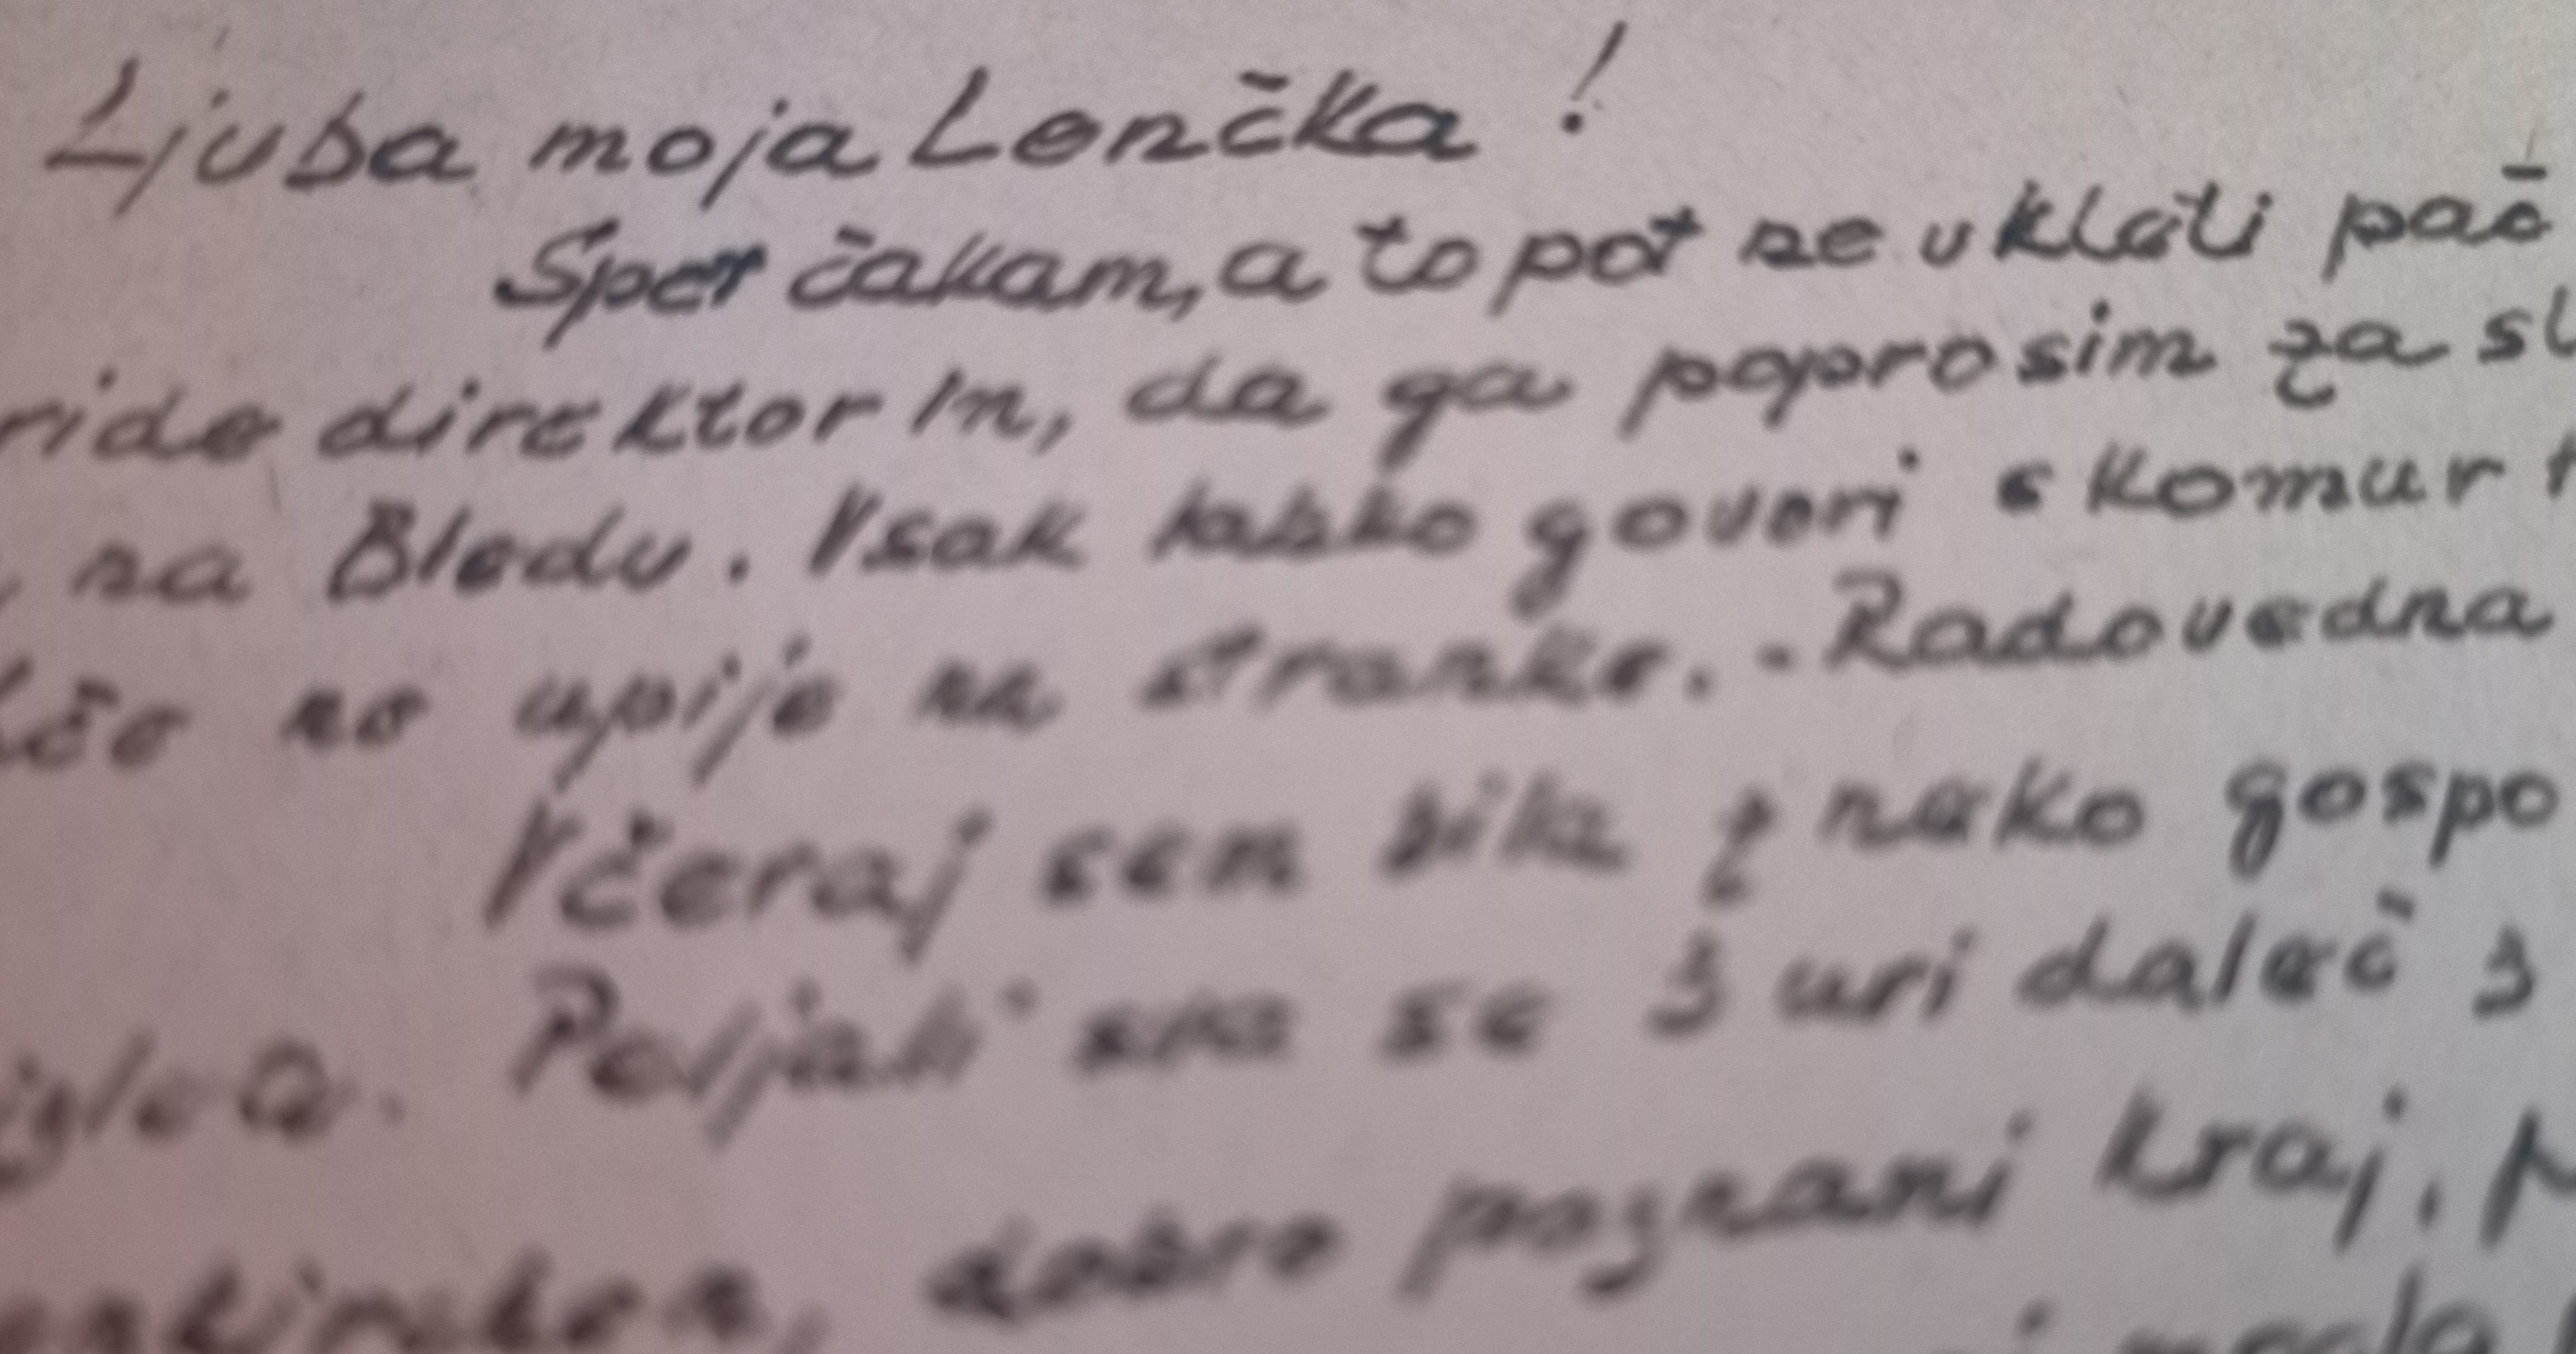 Ljuba moja Lenčka!
Spet čakam, a to pot ne v kleti pač
ride direktor in, da ga poprosim za sl
na Bledu. Vsak lahko govori s komur
ne upije na stranke. - Radovedna
Včeraj sem bila z neko gospo
Peljali smo se 3 uri daleč
dobro poznani kraj,